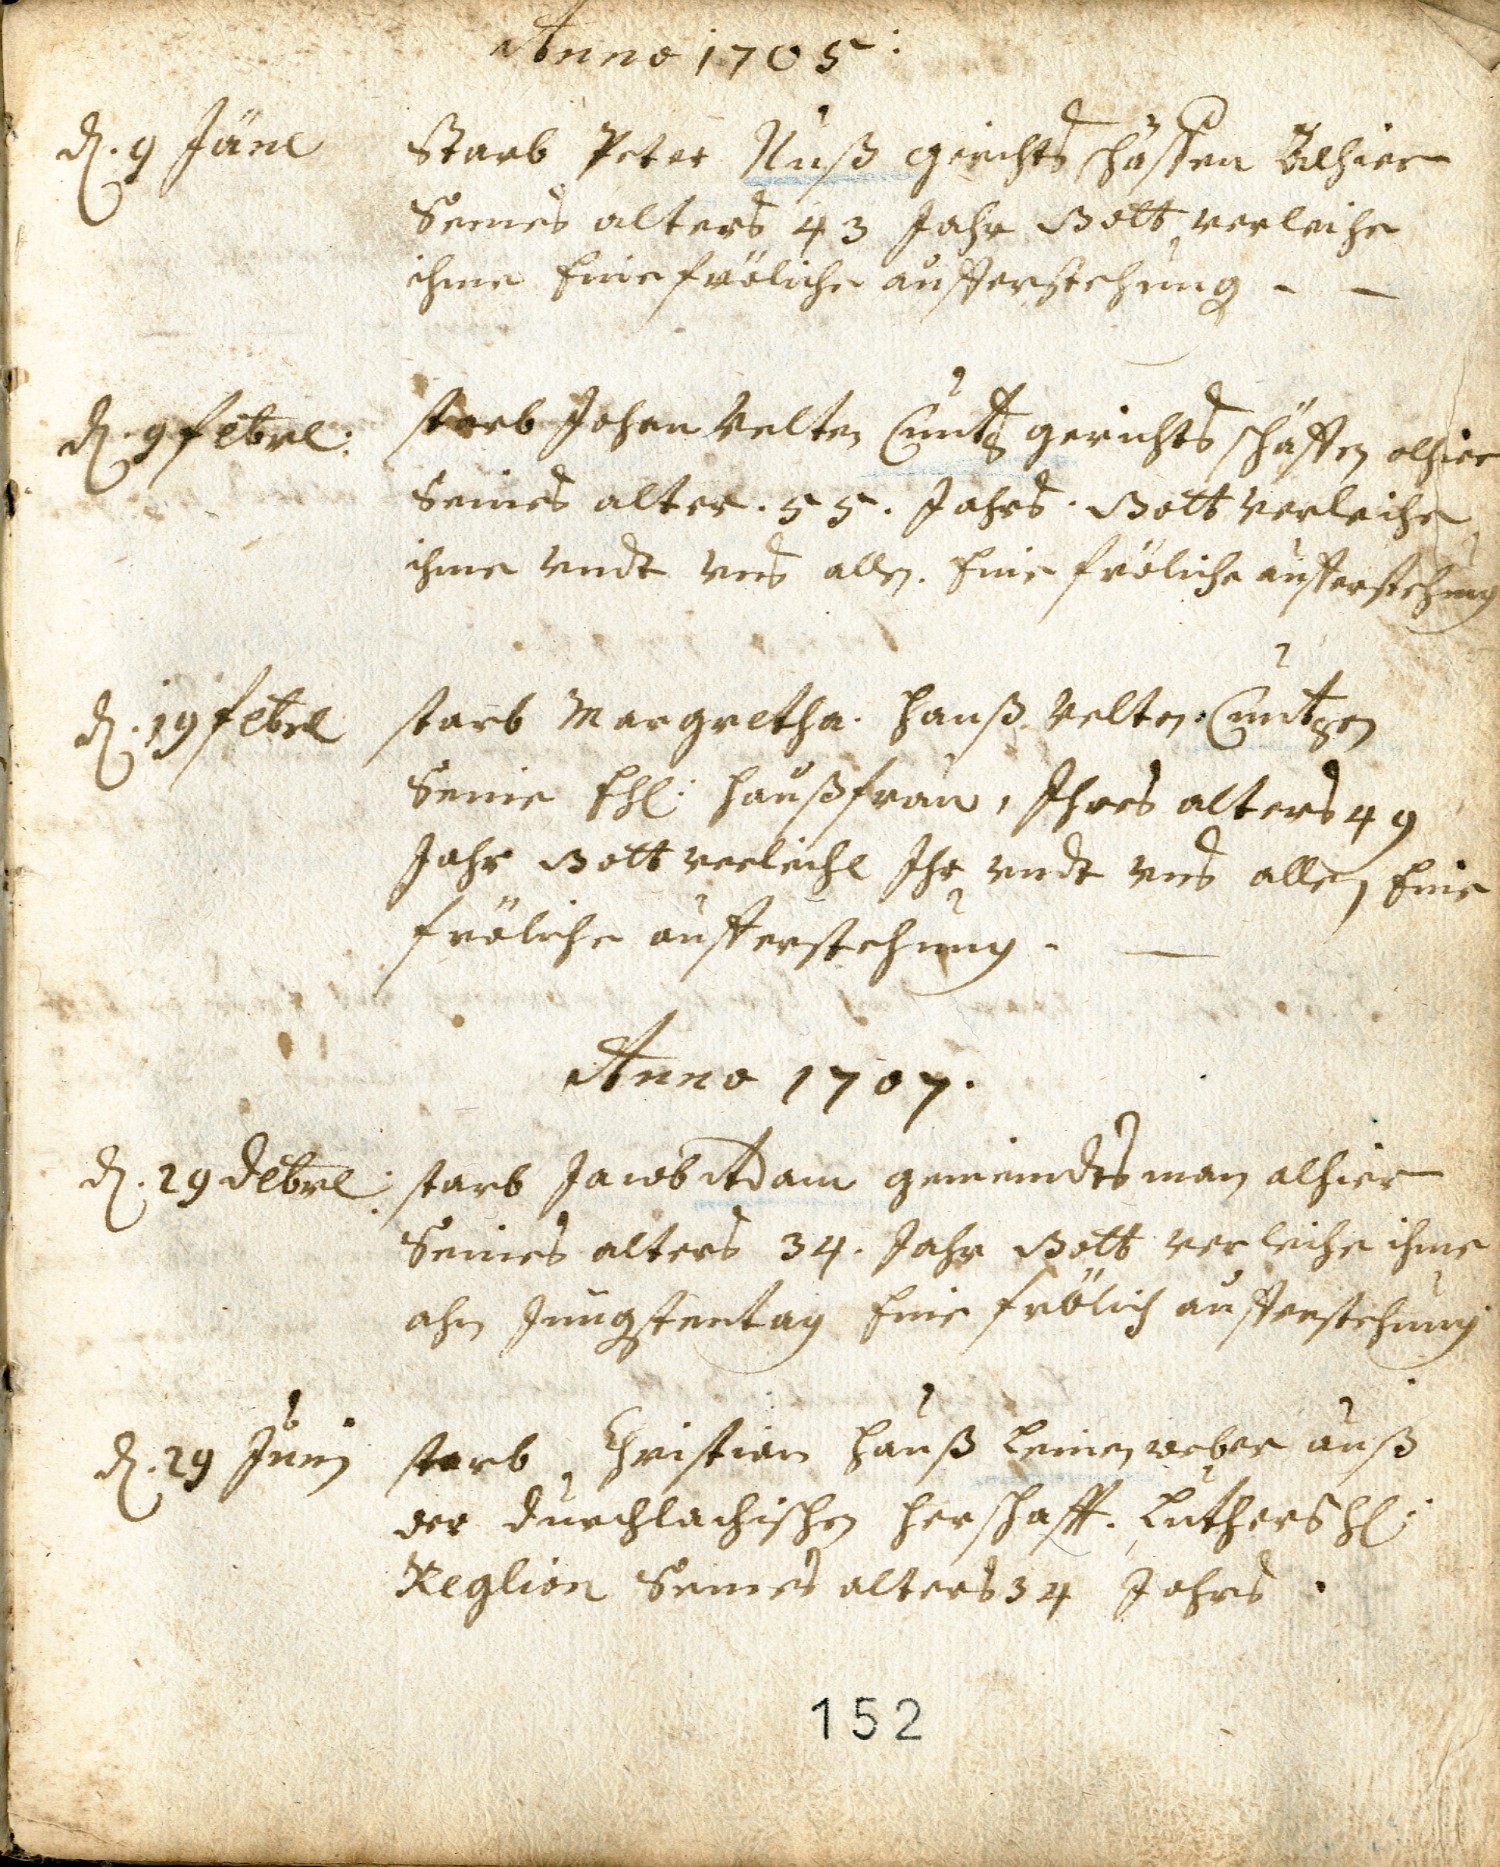 Anno 1705:
d. 9 Jäne Starb Peter Nuß gerichts schöffen Alhier
Seines alters 43 Jahr Gott verleihe
ihme Eine fröliche aufferstehung - -
d. 9 febre: starb Johan Velten Cuntz gerichts schäffen alhier
Seines alter. 55. Jahrs. Gott verleihe
ihme undt uns allen. Eine fröliche aufferstehung
d. 19 febre starb Margretha. Hanß Velten Cuntzen
Seine Ehl: haußfrau, Ihres alters 49
Jahr Gott verleihe Ihr undt uns allen Eine
fröliche aufferstehung. -
Anno 1707.
d. 29 debre: starb Jacob Adam gemeindtsman alhier
Seines alters 34. Jahr Gott verleihe ihme
ahn Jungstentag Eine frölich aufferstehung
d. 29 Junij starb Christian Hauß Leinenweber auß
der durchlachischen herschafft. Luthershl:
Reglion Seines alters 34 Jahrs.
152